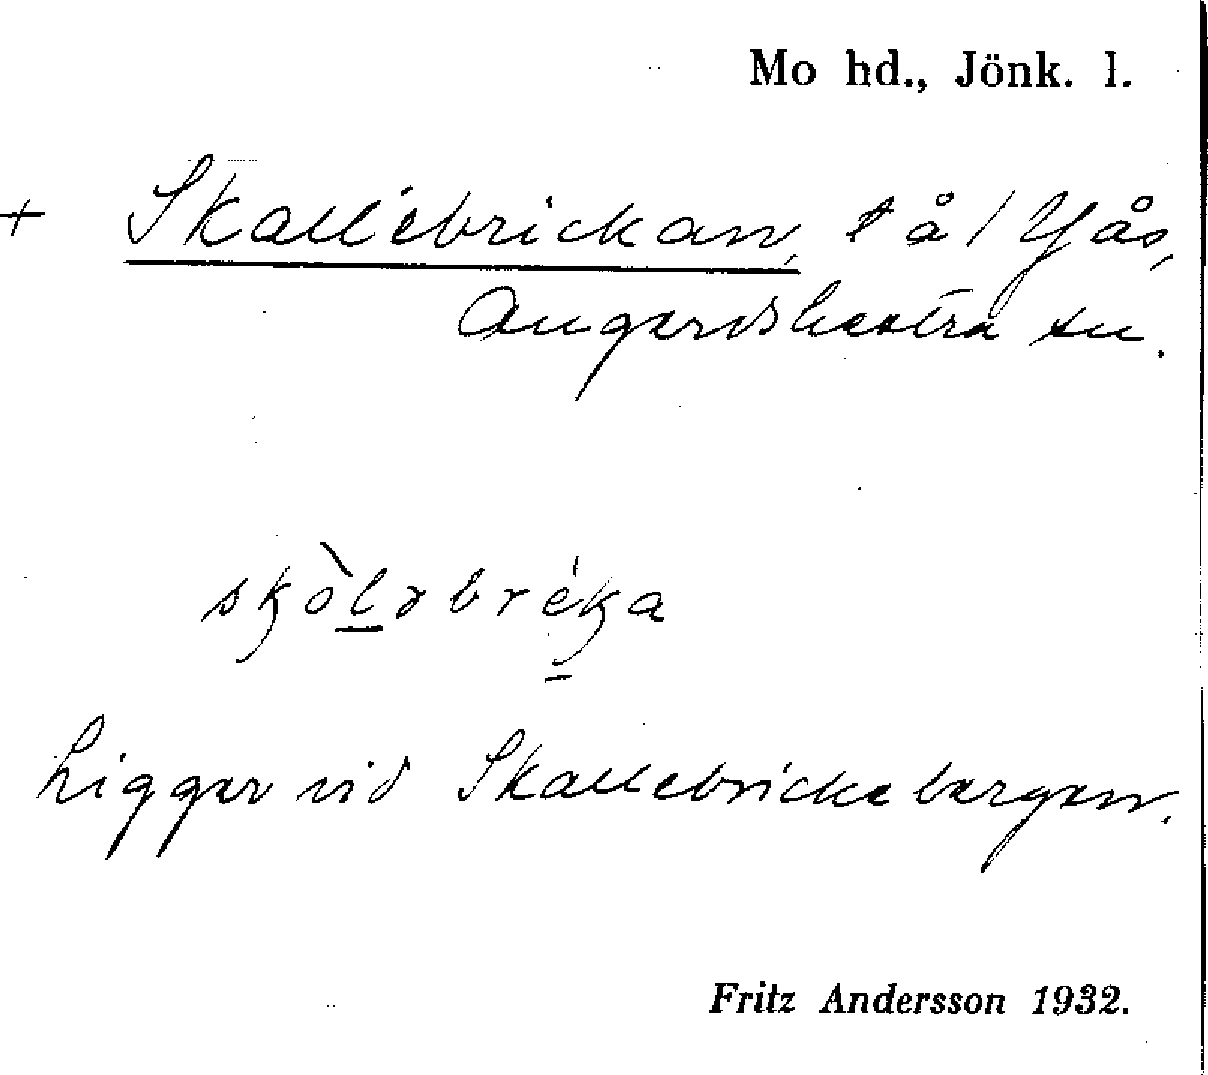 Mo hd., Jönk. l.
+ Skallebrickan, t å / Yås,
Angerdshestra sn.
skòlₔbréka
Ligger vid Skallebrickebergen.
Fritz Andersson 1932.